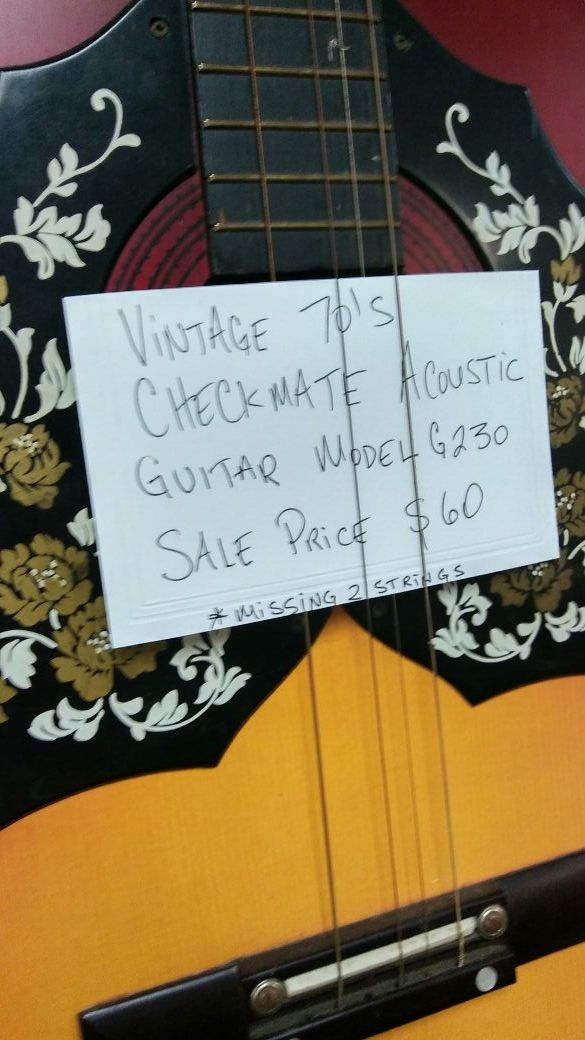 VINTAGE 70'S
CHECKMATE ACOUSTIC
GUITAR MODEL G230
SALE PRICE $60
*MISSING 2 STRINGS